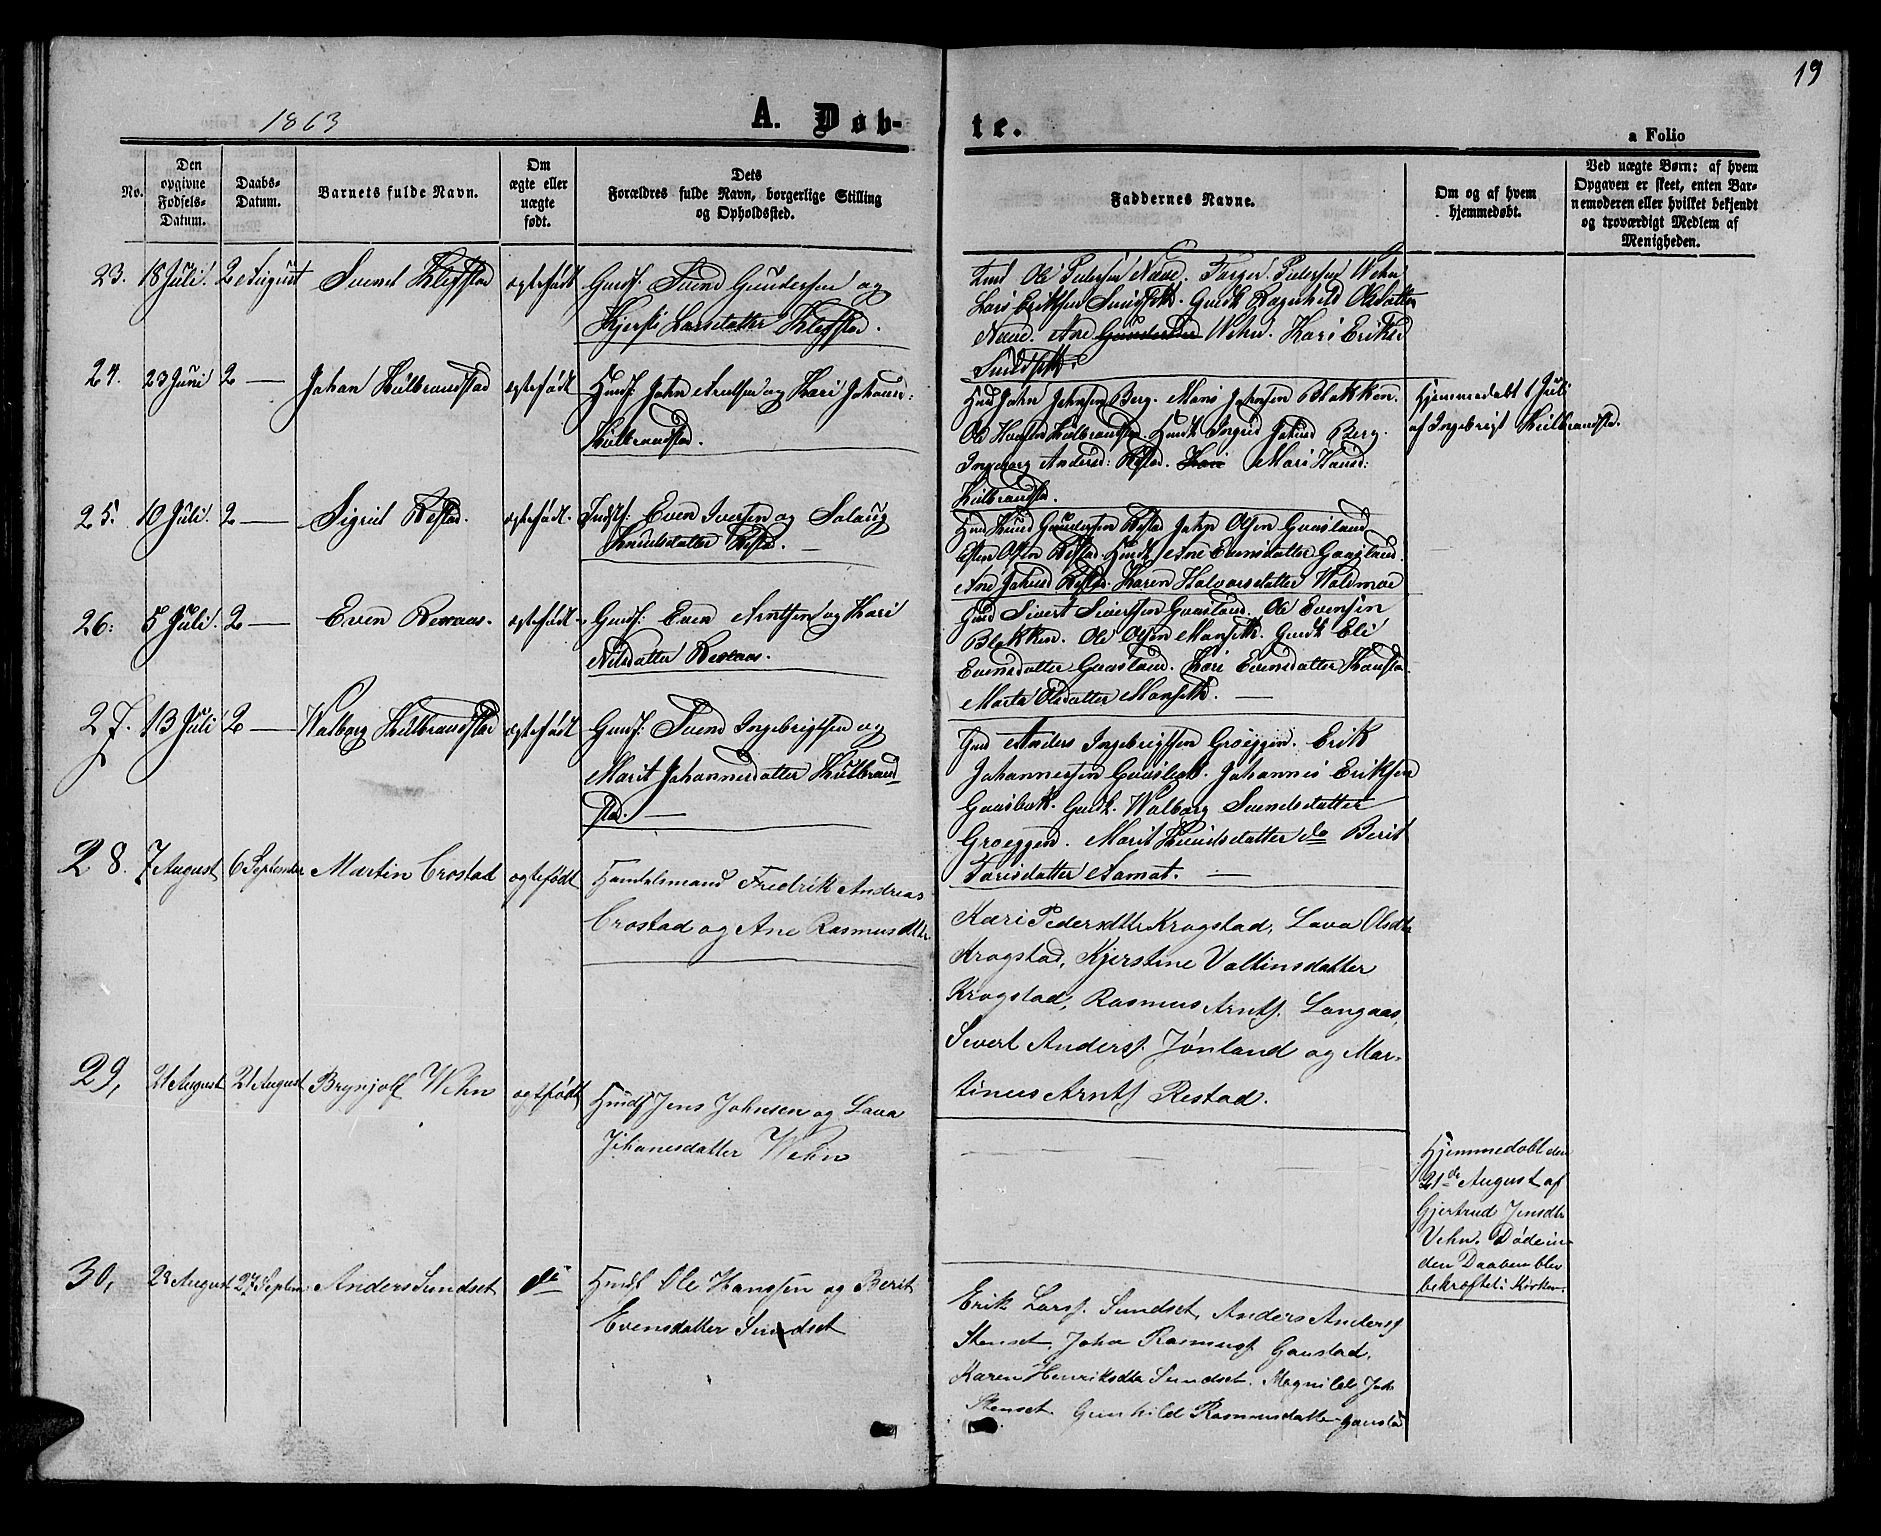 19
1863
A. Døb-
te.
a Folio
No.
Den opgivne Fødsels-Datum.
Daabs-Datum.
Barnets fulde Navn.
Om ægte eller uægte født.
Dets Forældres fulde Navn, borgerlige Stilling og Opholdssted.
Faddernes Navne.
Om og af hvem hjemmedøbt.
Ved uægte Børn: af hvem Opgaven er skeet, enten Barnemoderen eller hvilket bekjendt og troværdigt Medlem af Menigheden.
23. 18 Juli. 2 August
ægtefødt Svend Gundersen og
Larsdatter
Ole Pedersen Næve. Torger Pedersen Wehn
Lars Eriksen Ragnhild Olsdatter
Ane Gundersen Wehn. Kari Eriksd
24. 23 Juni 2 — Johan Hulbrandstad ægtefødt
John Arntsen og Kari Johansd:
Hulbrandstad.
John Johnsen Berg. Mons Johnsen Blokken.
Ole Hansen Hulbrandstad. Ingrid Johnsd Berg.
Ingeborg Andersd: Restad. Kari Mari Hansd:
Hulbrandstad.
Hjemmedøbt 1 Juli
af Ingebrigt Hulbrandstad.
25. 10 Juli. 2 — Sigrid Restad. ægtefødt.
Even Iversen og Solaug
Knudsdatter Restad. —
Knud Gundersen Restad John Olsen Gaasland
Esten Olsen Restad. Ane Evensdatter Gaasland.
Ane Johnsd Restad. Karen Halvorsdatter Woldmoe
26. 5 Juli. 2 — Even Resaas. ægtefødt.
Even Arntsen og Kari
Nilsdatter Resaas.
Sivert Sivertsen Gaasland. Ole Evensen
Blokken. Ole Olsen Eli
Evensdatter Gaasland. Kari Evensdatter
Marta Olsdatter —
27. 13 Juli 2 — Walborg Hulbrandstad ægtefødt
Svend Ingebrigtsen og
Marit Johannesdatter Hulbrand-
stad. —
Anders Ingebrigtsen Groeggen. Erik
Johannessen Gaasbak. Johannes Eriksen
Gaasbak. Walborg Svendsdatter
Groeggen. Marit Knudsdatter do Berit
Aamot. —
28. 7 August 6 September Martin Crostad ægtefødt
Handelsmand Fredrik Andreas
Crostad og Ane Rasmusdtter
Kari Pedersdtter Krogstad, Lava Olsdtr
Krogstad, Kjerstine Voltinsdatter
Krogstad, Rasmus Arntf. Langaas,
Sivert Andersf. Jønland og Mar-
tinus Arntf Restad.
29, 21 August 21 August Brynjolf Wehn ægtfødt
Jens Johnsen og Lava
Johanesdatter Wehn
Hjemmedøbt den
21de August af
Gjertrud Jensdtr
Vehn. Døde in-
den Daaben blev
bekræftet i Kirken.
30, 23 August 27 Septem: Anders Sundset do
Ole Hansen og Berit
Evensdatter Sundset
Erik Larsf. Sundset, Anders Andersf
Stenset, John Rasmusf. Gaustad,
Karen Henriksdtr Sundset. Magnild Joh
Stenset. Gunhild Rasmusdatter Gaustad